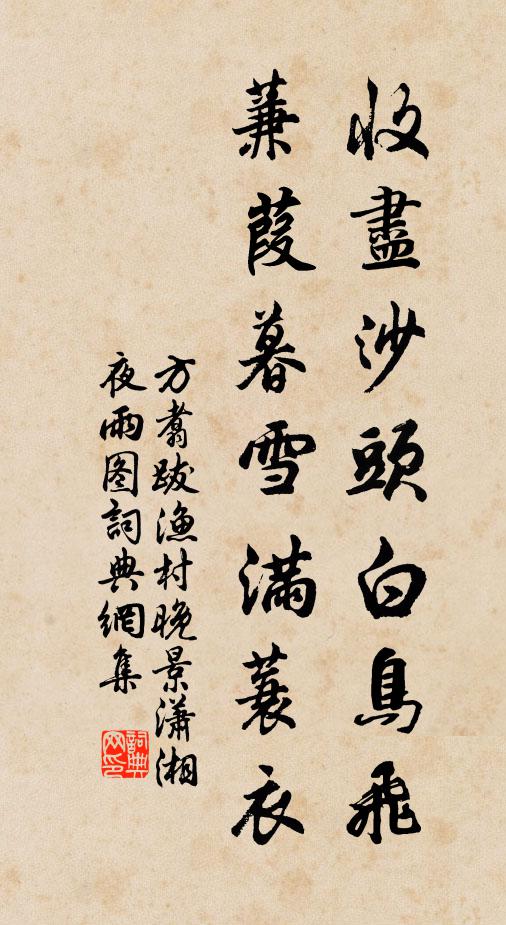 收盡沙頭白鳥飛
蒹葭暮雪滿蓑衣
方翥跋漁村晚景瀟湘
夜雨图詞典網集
詞典
网印